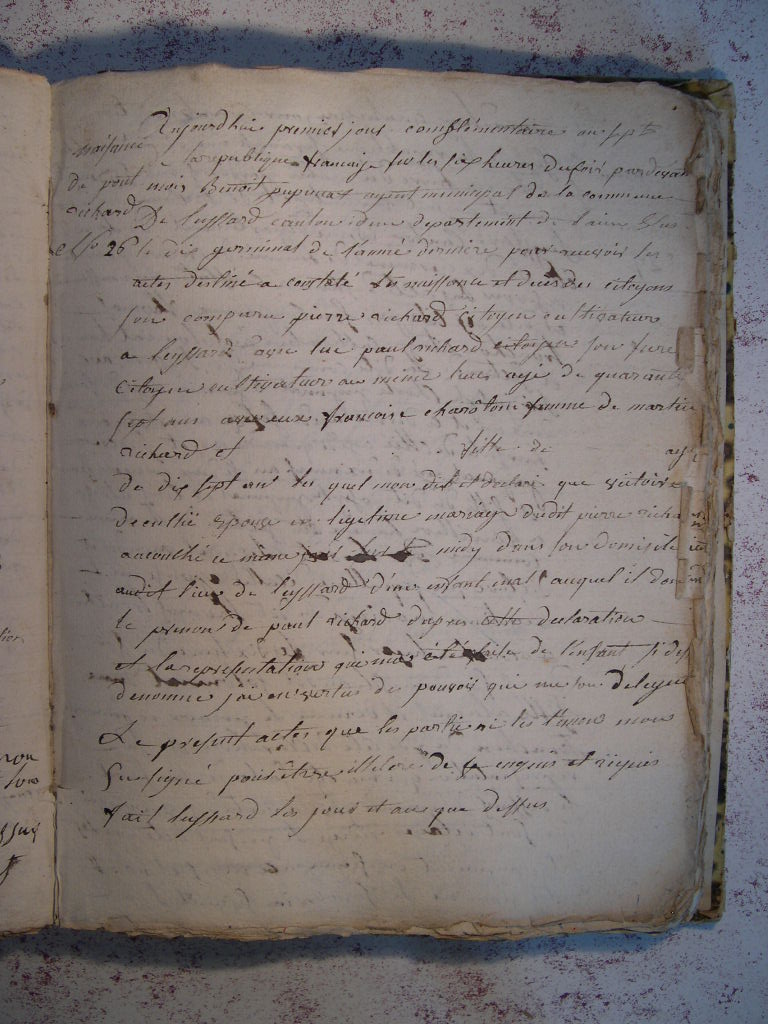 naisance
de poul
richard
No 26
Aujourdhui premier jour complémentaire an sept
la republique francaise sur les six heures du soir pardevan
moi benoit agent municipal de la commune
De leyssard canton departement de l'ain Elus
le dis germinal de l'anné derniere pour recevoir les
actes destiné a constaté les naissance et deces des citoyens
son comparu pierre richard citoyen cultivateur
a leyssard avec lui paul richard citoyen son frere
citoyen cultivateur au meme lieu agé de quarante
sept ans avec eux francoise femme de martin
richard et fille de agé
de dix sept an les quel mon dit et declaré que victoire
epouse en legetime mariage dudit pierre richa
accouché ce meme jour midy dans son domicile
audit lieu de leyssard d'un enfant mal auquel il donn
le prenon de paul richard dapres cette declaration
et la representation qui mas été faite de l'enfant si des
denommé jai en vertus des pouvoir qui me son délegué
Le present actes que les partie ni les témoin non
Su signé pour être illeteré de ce enquis et requis
fait leyssard les jour et an que dessus